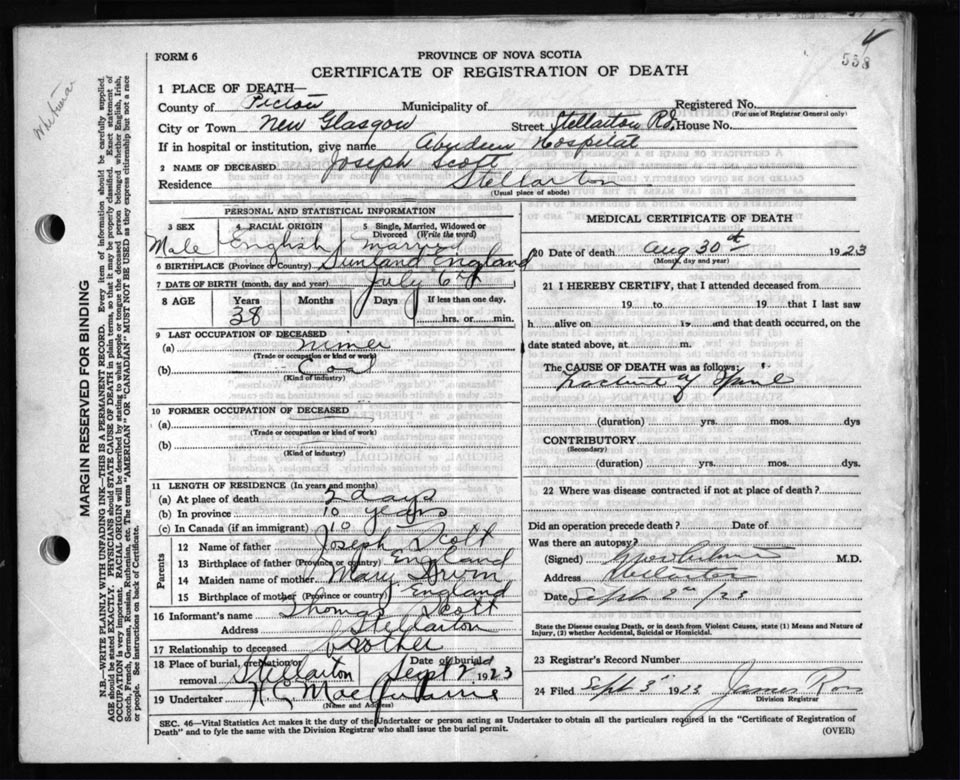 558
FORM 6
PROVINCE OF NOVA SCOTIA
CERTIFICATE OF REGISTRATION OF DEATH
1 PLACE OF DEATH—
County of Pictou Municipality of Registered No.
(For use of Registrar General only)
City or Town New Glasgow Street Stellarton Rd. House No.
If in hospital or institution, give name Aberdeen Hospital
2 NAME OF DECEASED Joseph Scott
Residence Stellarton
(Usual place of abode)
PERSONAL AND STATISTICAL INFORMATION
3 SEX 4 RACIAL ORIGIN 5 Single, Married, Widowed or Divorced (Write the word)
Male English Married
6 BIRTHPLACE (Province or Country) Sunland England
7 DATE OF BIRTH (month, day and year) July 6th
8 AGE Years Months Days If less than one day,
38 hrs. or min.
9 LAST OCCUPATION OF DECEASED
(a) Miner
(Trade or occupation or kind of work)
(b) Coal
(Kind of industry)
10 FORMER OCCUPATION OF DECEASED
(a)
(Trade or occupation or kind of work)
(b)
(Kind of industry)
11 LENGTH OF RESIDENCE (In years and months)
(a) At place of death 2 days
(b) In province 10 years
(c) In Canada (if an immigrant) 10 "
Parents
12 Name of father Joseph Scott
13 Birthplace of father (Province or country) England
14 Maiden name of mother Mary
15 Birthplace of mother (Province or country) England
16 Informant's name Thomas Scott
Address Stellarton
17 Relationship to deceased brother
18 Place of burial, cremation or removal Stellarton Date of burial Sept 2nd 1923
19 Undertaker H.C.
(Name and Address)
MEDICAL CERTIFICATE OF DEATH
20 Date of death Aug 30th 1923
(Month, day and year)
21 I HEREBY CERTIFY, that I attended deceased from
19 to 19 that I last saw
h alive on 19 and that death occurred, on the
date stated above, at m.
The CAUSE OF DEATH was as follows:
Fracture of Spine
(duration) yrs. mos. dys
CONTRIBUTORY
(Secondary)
(duration) yrs. mos. dys.
22 Where was disease contracted if not at place of death?
Did an operation precede death? Date of
Was there an autopsy?
(Signed) M.D.
Address Stellarton
Date Sept 2nd /23
State the Disease causing Death, or in death from Violent Causes, state (1) Means and Nature of
Injury, (2) whether Accidental, Suicidal or Homicidal.
23 Registrar's Record Number
24 Filed Sept 3rd 1923 James Ross
Division Registrar
SEC. 46—Vital Statistics Act makes it the duty of the Undertaker or person acting as Undertaker to obtain all the particulars required in the "Certificate of Registration of
Death" and to fyle the same with the Division Registrar who shall issue the burial permit.
(OVER)
MARGIN RESERVED FOR BINDING
N.B.—WRITE PLAINLY WITH UNFADING INK—THIS IS A PERMANENT RECORD. Every item of information should be carefully supplied.
AGE should be stated EXACTLY. PHYSICIANS should STATE CAUSE OF DEATH in plain terms, so that it may be properly classified. Exact statement of
OCCUPATION is very important. RACIAL ORIGIN will be described by stating to what people or tongue the deceased person belonged whether English, Irish,
Scotch, French, German, Russian, Ruthenian, etc. The terms "AMERICAN" OR "CANADIAN MUST NOT BE USED as they express citizenship but not a race
or people. See instructions on back of Certificate.